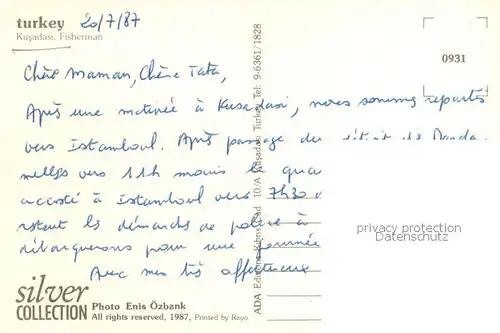 turkey 20/7/87
Kuşadası, Fisherman
0931
Chère Maman, Chère Tata,
Après une matinée à Kusadasi, nous sommes repartis
vers Istamboul. Après passage du détroit de Darda.
nelles vers 11h mais le qua
accosté à Istamboul vers 7h30
restent les démarches de police à
débarquerons pour une journée
Avec mes très affectueux
privacy protection
Datenschutz
ADA Editions Kıbrıs Cad. 10/A Kuşadası Turkey Tel: 9-6361/1828
silver
COLLECTION
Photo Enis Özbank
All rights reserved, 1987, Printed by Reyo